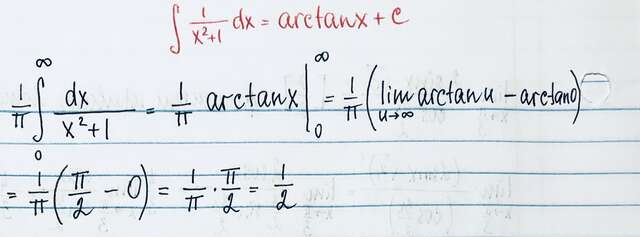 ∫ 1/(x²+1) dx = arctanx + c
1/π ∫₀^∞ dx/(x²+1) = 1/π arctanx |₀^∞ = 1/π (lim u→∞ arctanu − arctan0)
= 1/π (π/2 − 0) = 1/π · π/2 = 1/2